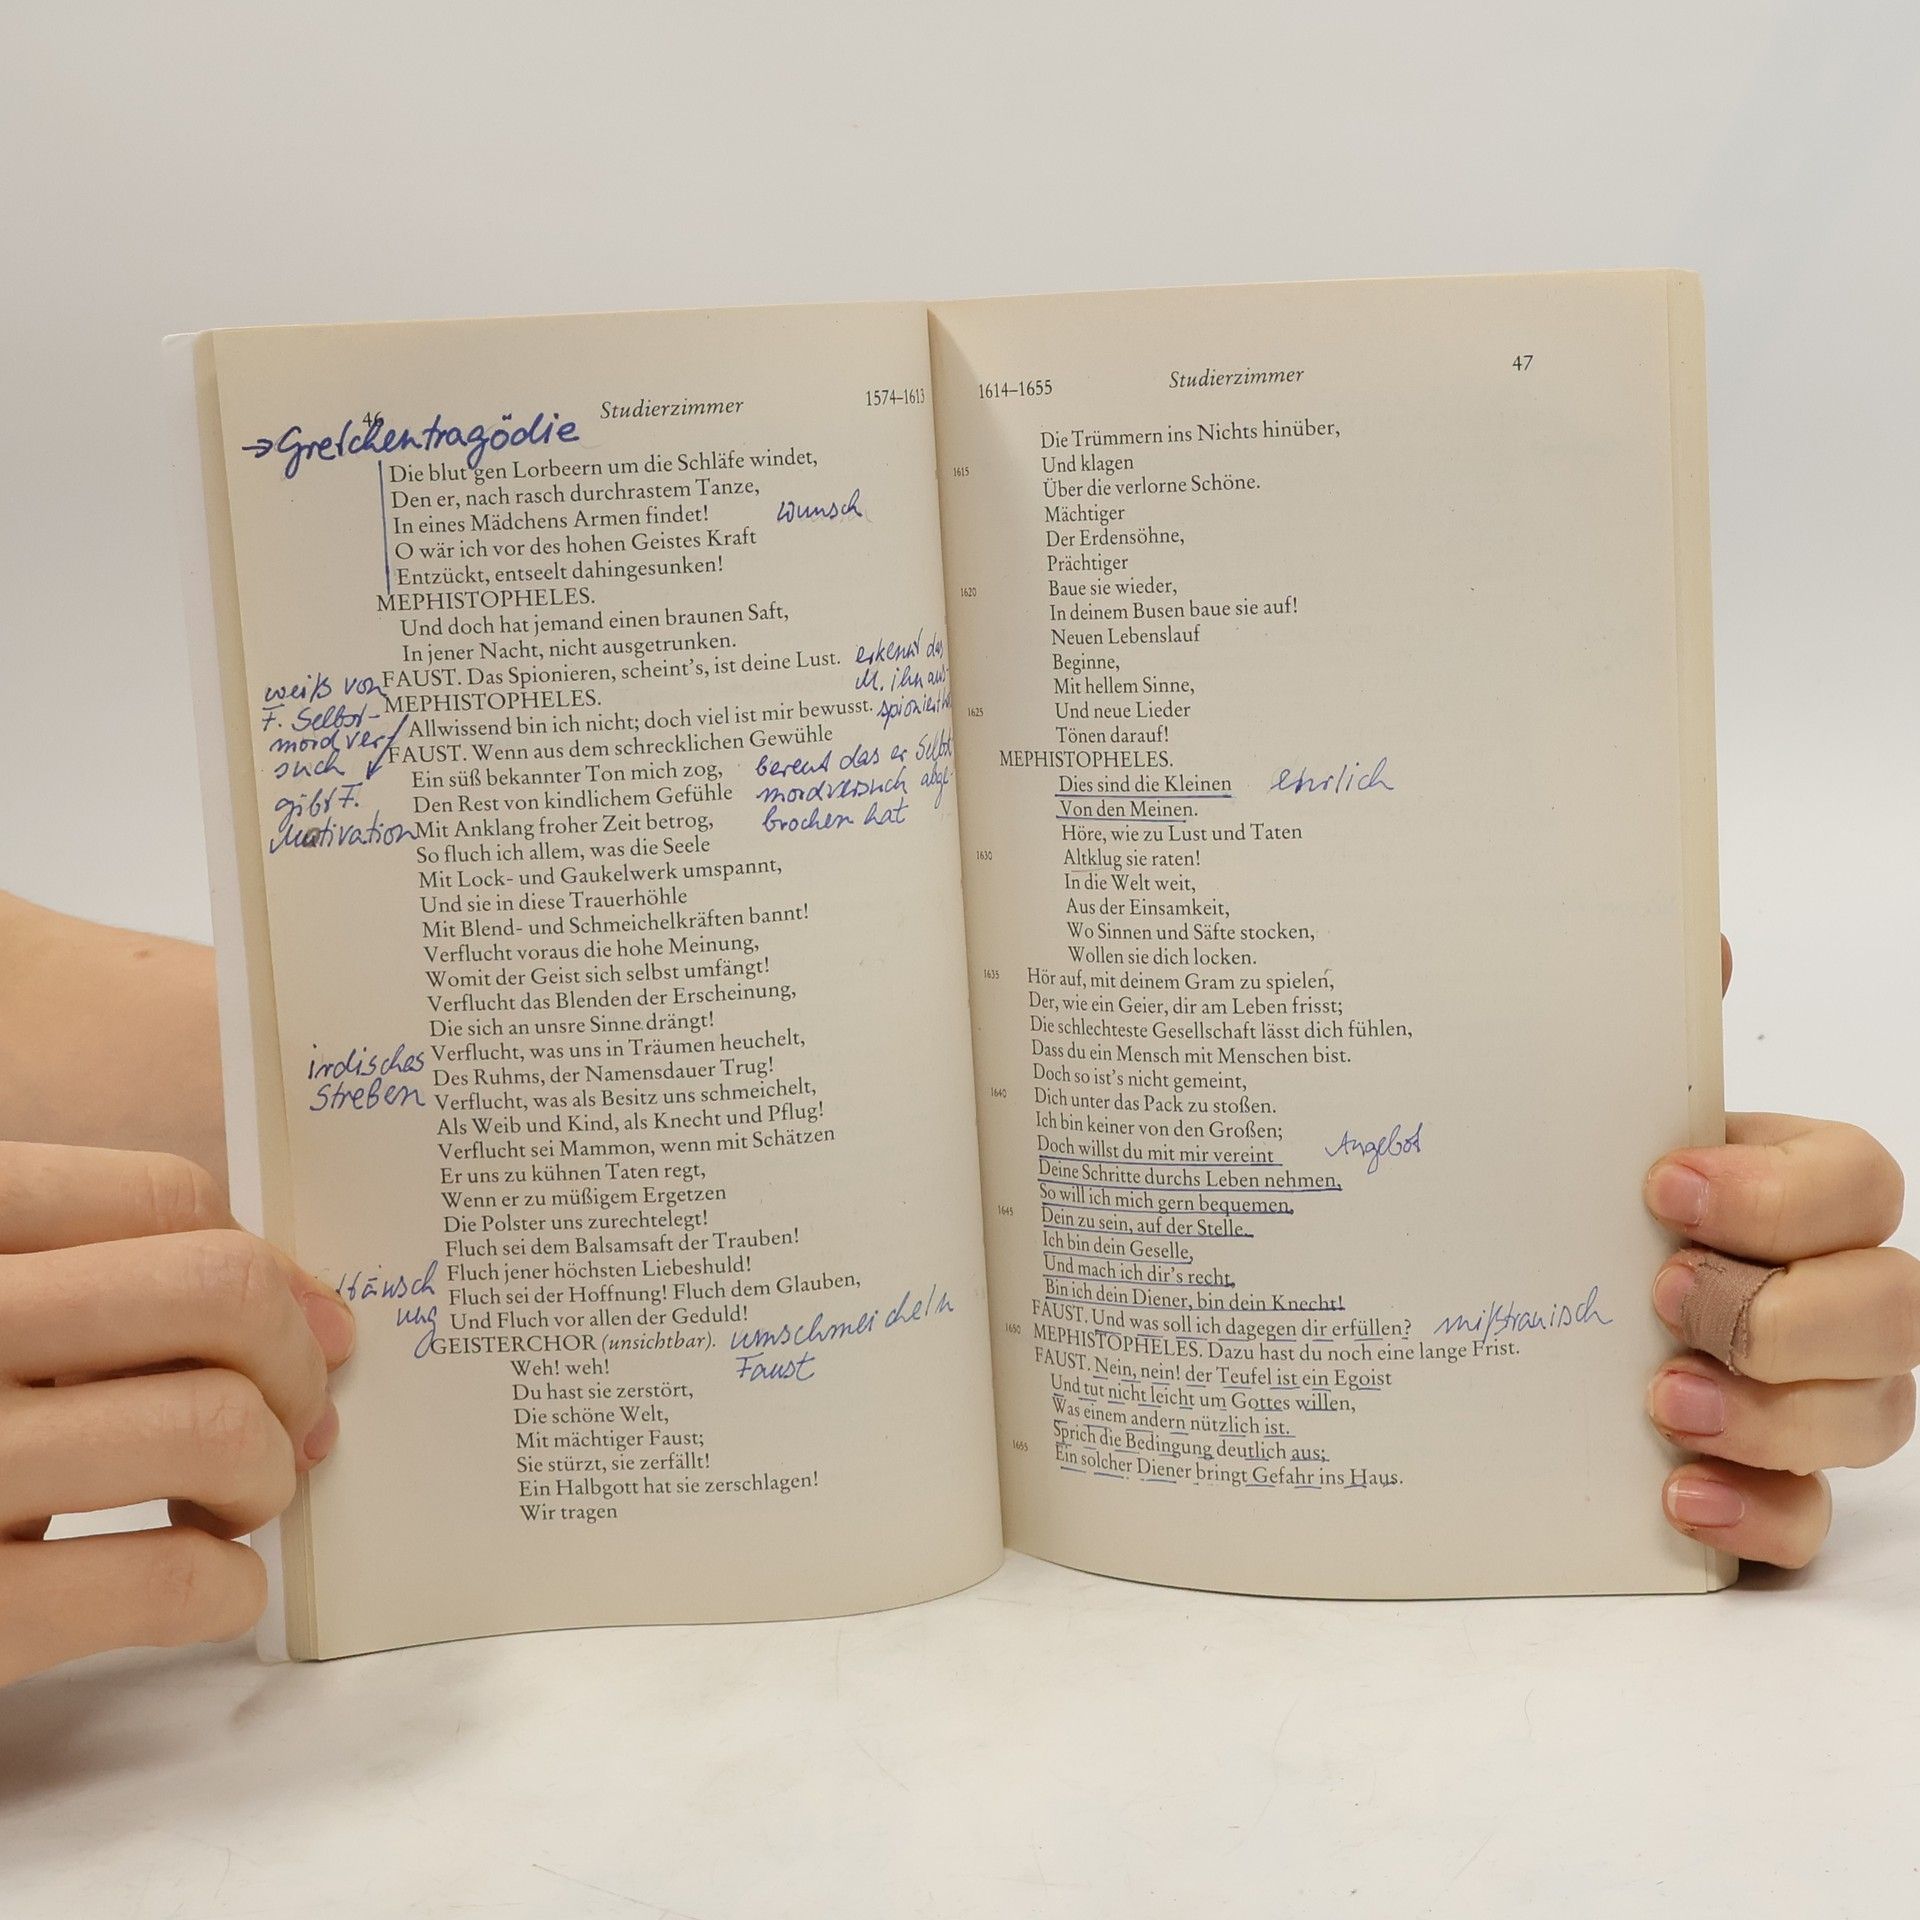 46
Studierzimmer
1574–1613
→ Gretchentragödie
Die blut'gen Lorbeern um die Schläfe windet,
Den er, nach rasch durchrastem Tanze,
In eines Mädchens Armen findet!
wunsch
O wär ich vor des hohen Geistes Kraft
Entzückt, entseelt dahingesunken!
MEPHISTOPHELES.
Und doch hat jemand einen braunen Saft,
In jener Nacht, nicht ausgetrunken.
FAUST. Das Spionieren, scheint's, ist deine Lust.
erkennt das
M. ihn aus-
spioniert
MEPHISTOPHELES.
weiß von
F. Selbst-
mordver-
such
gibt F.
Motivation
Allwissend bin ich nicht; doch viel ist mir bewusst.
FAUST. Wenn aus dem schrecklichen Gewühle
Ein süß bekannter Ton mich zog,
Den Rest von kindlichem Gefühle
Mit Anklang froher Zeit betrog,
bereut das er Selbst
mordversuch abge-
brochen hat
So fluch ich allem, was die Seele
Mit Lock- und Gaukelwerk umspannt,
Und sie in diese Trauerhöhle
Mit Blend- und Schmeichelkräften bannt!
Verflucht voraus die hohe Meinung,
Womit der Geist sich selbst umfängt!
Verflucht das Blenden der Erscheinung,
Die sich an unsre Sinne drängt!
irdisches
Streben
Verflucht, was uns in Träumen heuchelt,
Des Ruhms, der Namensdauer Trug!
Verflucht, was als Besitz uns schmeichelt,
Als Weib und Kind, als Knecht und Pflug!
Verflucht sei Mammon, wenn mit Schätzen
Er uns zu kühnen Taten regt,
Wenn er zu müßigem Ergetzen
Die Polster uns zurechtelegt!
Fluch sei dem Balsamsaft der Trauben!
Fluch jener höchsten Liebeshuld!
Fluch sei der Hoffnung! Fluch dem Glauben,
Und Fluch vor allen der Geduld!
täusch
ung
GEISTERCHOR (unsichtbar).
umschmeicheln
Faust
Weh! weh!
Du hast sie zerstört,
Die schöne Welt,
Mit mächtiger Faust;
Sie stürzt, sie zerfällt!
Ein Halbgott hat sie zerschlagen!
Wir tragen
1614–1655
Studierzimmer
47
Die Trümmern ins Nichts hinüber,
1615 Und klagen
Über die verlorne Schöne.
Mächtiger
Der Erdensöhne,
Prächtiger
1620 Baue sie wieder,
In deinem Busen baue sie auf!
Neuen Lebenslauf
Beginne,
Mit hellem Sinne,
1625 Und neue Lieder
Tönen darauf!
MEPHISTOPHELES.
Dies sind die Kleinen
ehrlich
Von den Meinen.
Höre, wie zu Lust und Taten
1630 Altklug sie raten!
In die Welt weit,
Aus der Einsamkeit,
Wo Sinnen und Säfte stocken,
Wollen sie dich locken.
1635 Hör auf, mit deinem Gram zu spielen,
Der, wie ein Geier, dir am Leben frisst;
Die schlechteste Gesellschaft lässt dich fühlen,
Dass du ein Mensch mit Menschen bist.
Doch so ist's nicht gemeint,
1640 Dich unter das Pack zu stoßen.
Ich bin keiner von den Großen;
Doch willst du mit mir vereint
Angebot
Deine Schritte durchs Leben nehmen,
So will ich mich gern bequemen,
1645 Dein zu sein, auf der Stelle.
Ich bin dein Geselle,
Und mach ich dir's recht,
Bin ich dein Diener, bin dein Knecht!
FAUST. Und was soll ich dagegen dir erfüllen?
mißtrauisch
1650 MEPHISTOPHELES. Dazu hast du noch eine lange Frist.
FAUST. Nein, nein! der Teufel ist ein Egoist
Und tut nicht leicht um Gottes willen,
Was einem andern nützlich ist.
Sprich die Bedingung deutlich aus;
1655 Ein solcher Diener bringt Gefahr ins Haus.